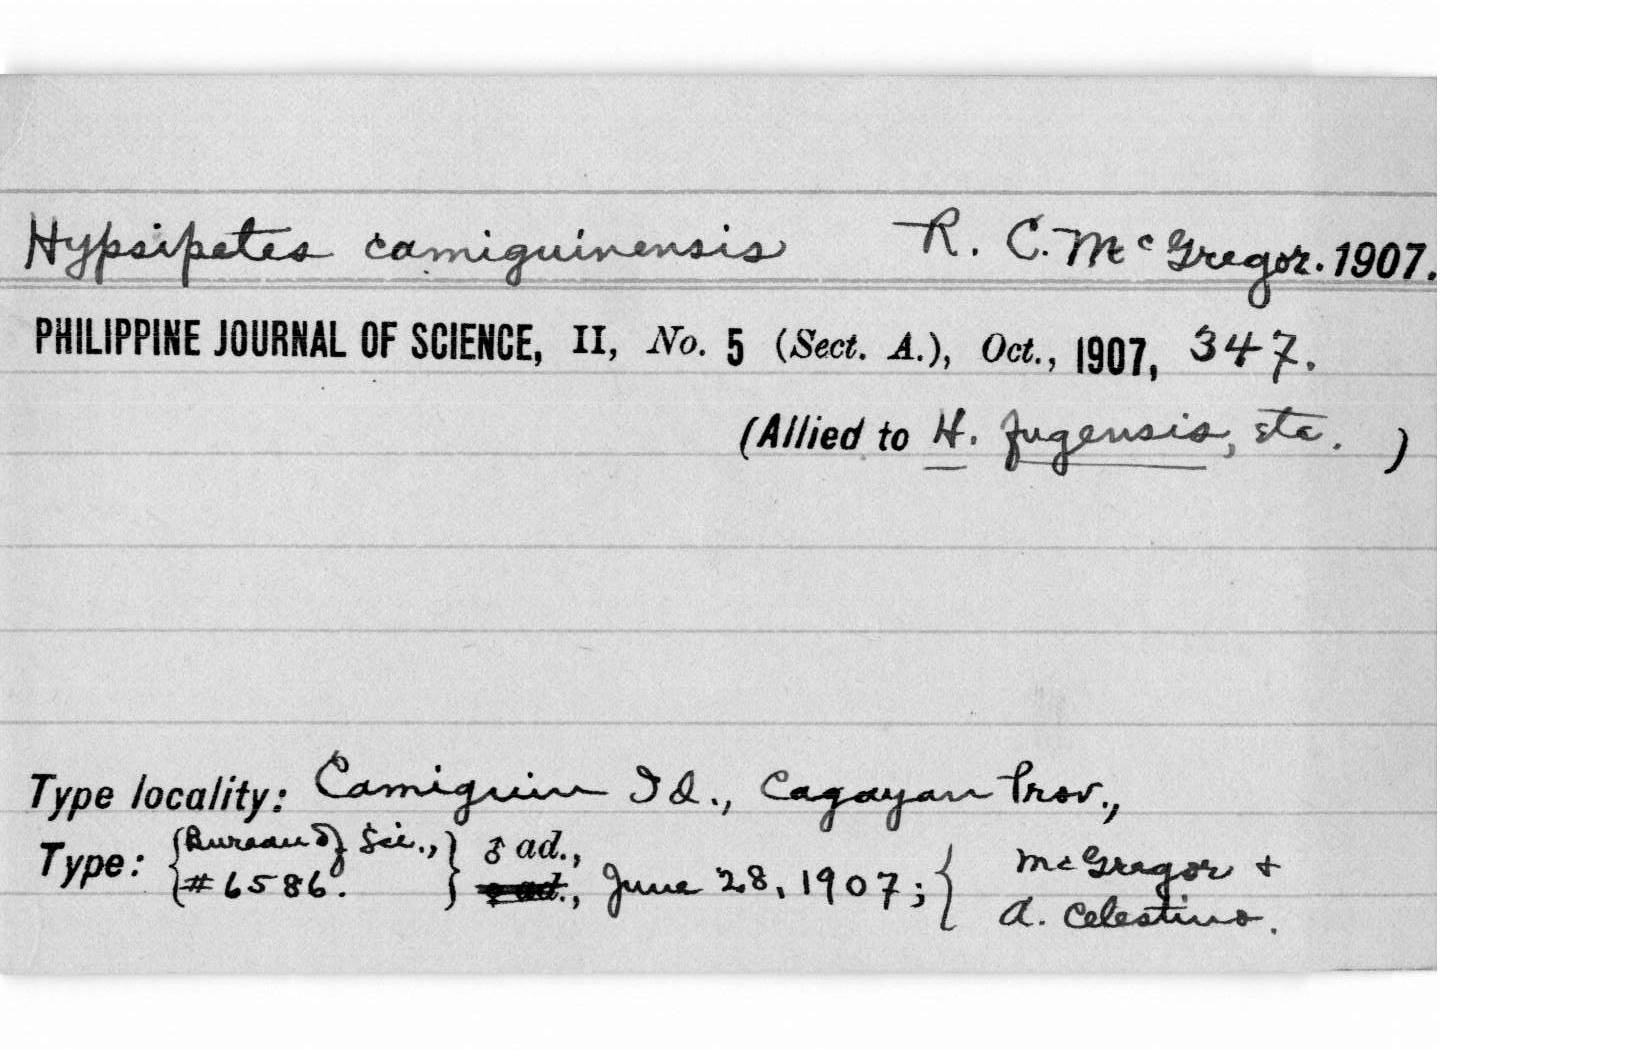 Hypsipetes camiguinensis R. C. McGregor. 1907.
PHILIPPINE JOURNAL OF SCIENCE, II, No. 5 (Sect. A.), Oct., 1907, 347.
(Allied to H. fugensis, etc. )
Type locality: Camiguin Id., Cagayan Prov.,
Type: {Bureau of Sci., #6586.} ♂ ad., ♀ ad., June 28, 1907; { McGregor + A. Celestino.